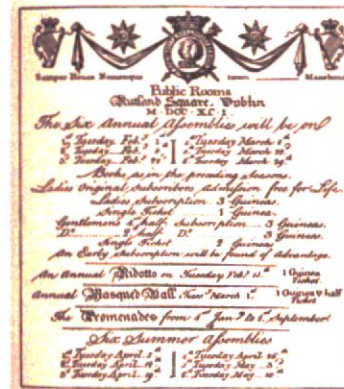 Semper Honos Nomenque
Public Rooms
Rutland Square, Dublin
M·DCC·XC·I·
The Six Annual Assemblies will be on
Tuesday Feb. 1 Tuesday March
Tuesday Feb. Tuesday March
Tuesday Feb. Tuesday March 29
Books as in the preceding Seasons.
Ladies Original Subscribers Admission free for Life.
Ladies Subscription 3 Guineas.
Single Ticket 1 Guinea
Gentlemen's 1st half Subscription 3 Guineas.
Do. 2 half Do. 3 Guineas.
Single Ticket 2 Guineas
An Early Subscription will be found of Advantage.
An Annual Ridotto on Tuesday Feb. 1 Guinea Ticket
Annual Masqued Ball March 1 1 Guinea & half Ticket
The Promenades from to September
Six Summer Assemblies
Tuesday April 5 Tuesday April 26
Tuesday April Tuesday May 3
Tuesday April 19 Tuesday May 10